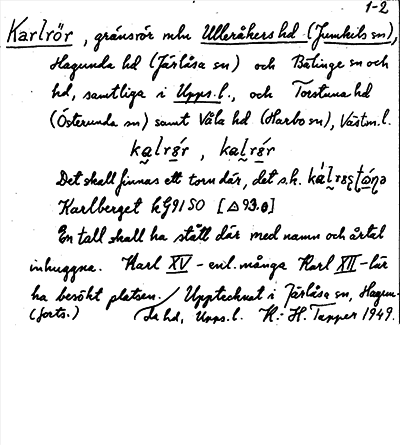 1-2
Karlrör, gränsrör mln Ulleråkers hd (Jumkils sn),
Hagunda hd (Järlåsa sn) och Bälinge sn och
hd, samtliga i Upps.l., och Torstuna hd
(Österunda sn) samt Våla hd (Harbo sn), Västm.l.
Det skall finnas ett torn där, det s.k.
Karlberget hG9150 [△93.0]
En tall skall ha stått där med namn och årtal
inhuggna. Karl XV – enl. många Karl XII – lär
ha besökt platsen. Upptecknat i Järlåsa sn, Hagun-
(forts.) da hd, Upps.l. K.-H. Tapper 1949.